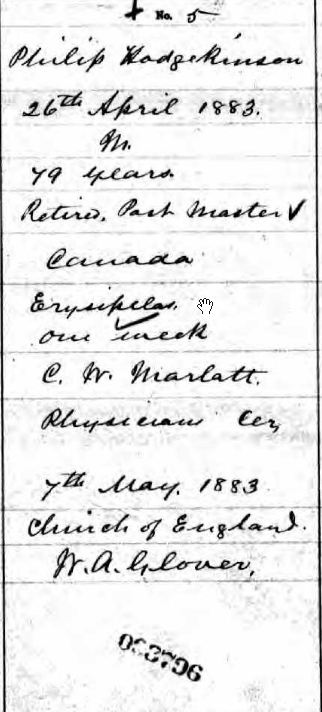 No. 5
Philip Hodgekinson
26th April 1883.
M.
79 years.
Retired, Post Master ✓
Canada
Erysipelas.
one week
C. W. Marlatt.
Physician Cer
7th May. 1883
Church of England.
W. A. Glover,